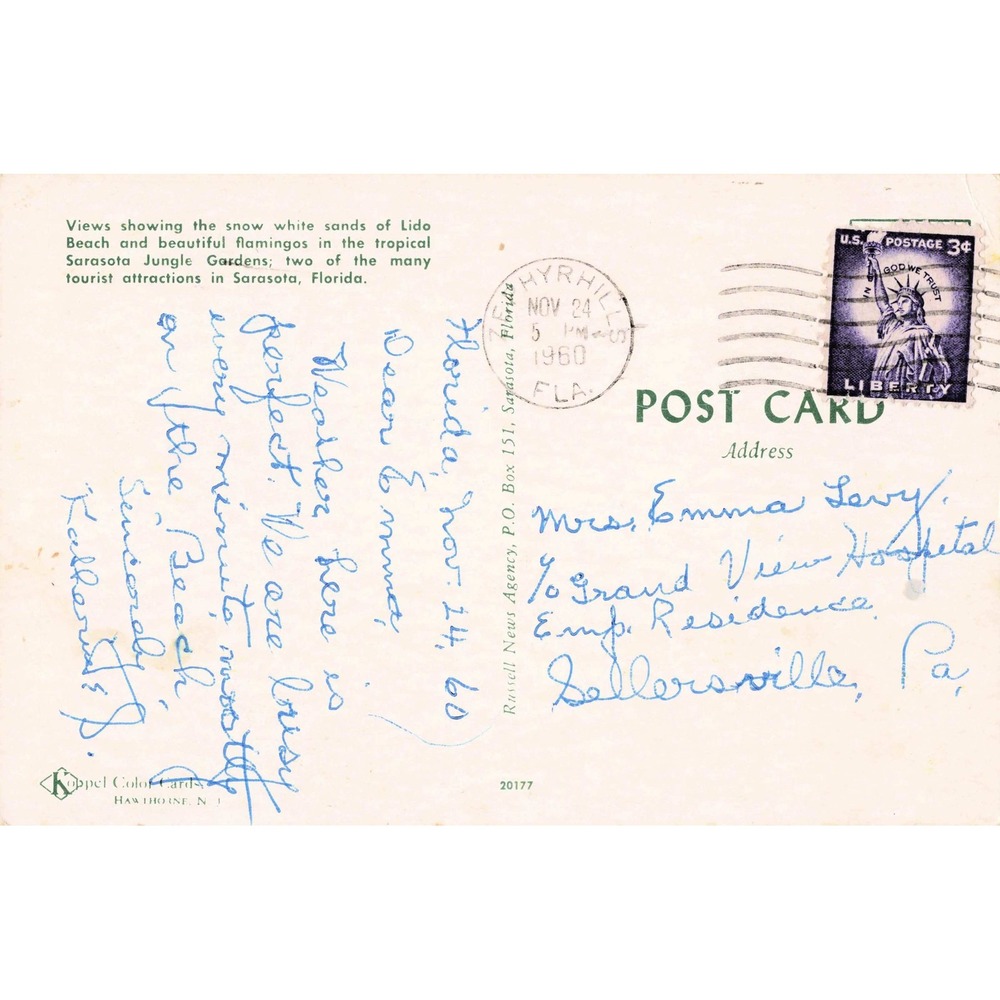 Views showing the snow white sands of Lido
Beach and beautiful flamingos in the tropical
Sarasota Jungle Gardens; two of the many
tourist attractions in Sarasota, Florida.
Florida, Nov. 24, 60
Dear Emma,
Weather here is
perfect. We are busy
every minute, mostly
on the Beach,
Sincerely,
Katharine J.
Koppel Color Cards
HAWTHORNE, N J
Russell News Agency, P.O. Box 151, Sarasota, Florida
20177
ZEPHYRHILLS
NOV 24
5 PM
1960
FLA.
U.S. POSTAGE 3¢
IN GOD WE TRUST
LIBERTY
POST CARD
Address
Mrs. Emma Levy.
℅ Grand View Hospital
Emp. Residence
Sellersville, Pa.